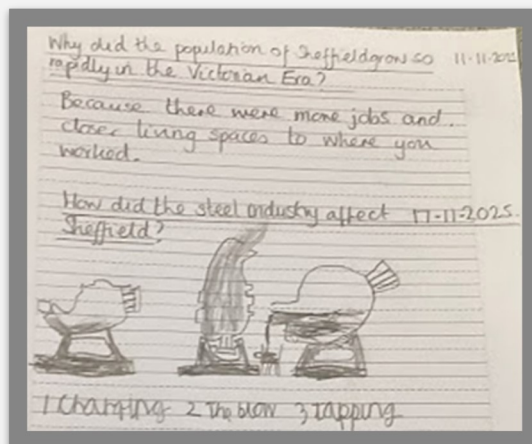 Why did the population of Sheffield grow so 11-11-2025
rapidly in the Victorian Era?
Because there were more jobs and
closer living spaces to where you
worked.
How did the steel industry affect 17-11-2025.
Sheffield?
1 Charging 2 The blow 3 Tapping